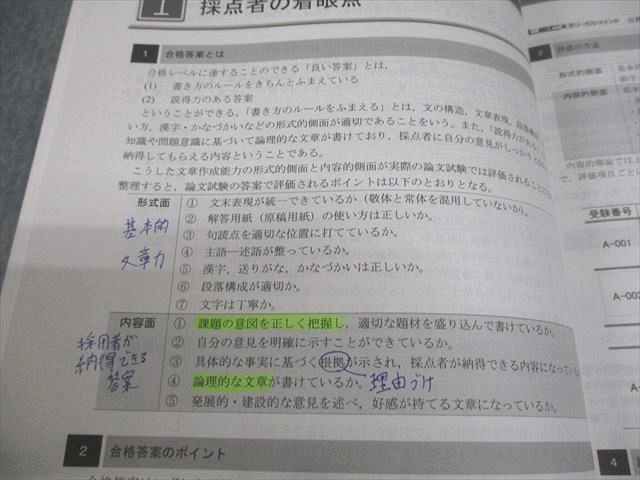 1 採点者の着眼点
1 合格答案とは
合格レベルに達することのできる「良い答案」とは,
(1) 書き方のルールをきちんとふまえている
(2) 説得力のある答案
ということができる。「書き方のルールをふまえる」とは, 文の構造, 文章表現, 段落構
い方, 漢字・かなづかいなどの形式的側面が適切であることをいう。また,「説得力がある」
知識や問題意識に基づいて論理的な文章が書けており, 採点者に自分の意見がしっかりと
納得してもらえる内容ということである。
こうした文章作成能力の形式的側面と内容的側面が実際の論文試験では評価されることに
整理すると, 論文試験の答案で評価されるポイントは以下のとおりとなる。
形式面
基本的
文章力
① 文末表現が統一できているか(敬体と常体を混用していないか)。
② 解答用紙(原稿用紙)の使い方は正しいか。
③ 句読点を適切な位置に打てているか。
④ 主語―述語が整っているか。
⑤ 漢字, 送りがな, かなづかいは正しいか。
⑥ 段落構成が適切か。
⑦ 文字は丁寧か。
内容面
採用者が
納得できる
答案
① 課題の意図を正しく把握し, 適切な題材を盛り込んで書けているか。
② 自分の意見を明確に示すことができているか。
③ 具体的な事実に基づく根拠が示され, 採点者が納得できる内容になってい
④ 論理的な文章が書けているか。 理由づけ
⑤ 発展的・建設的な意見を述べ, 好感が持てる文章になっているか。
2 合格答案のポイント
LEC東京リーガルマインド
3 評価の方法
形式的側面
内容的側面
内容的側面では
で, 評価項目ごとに
受験番号
A-001
A-002
4